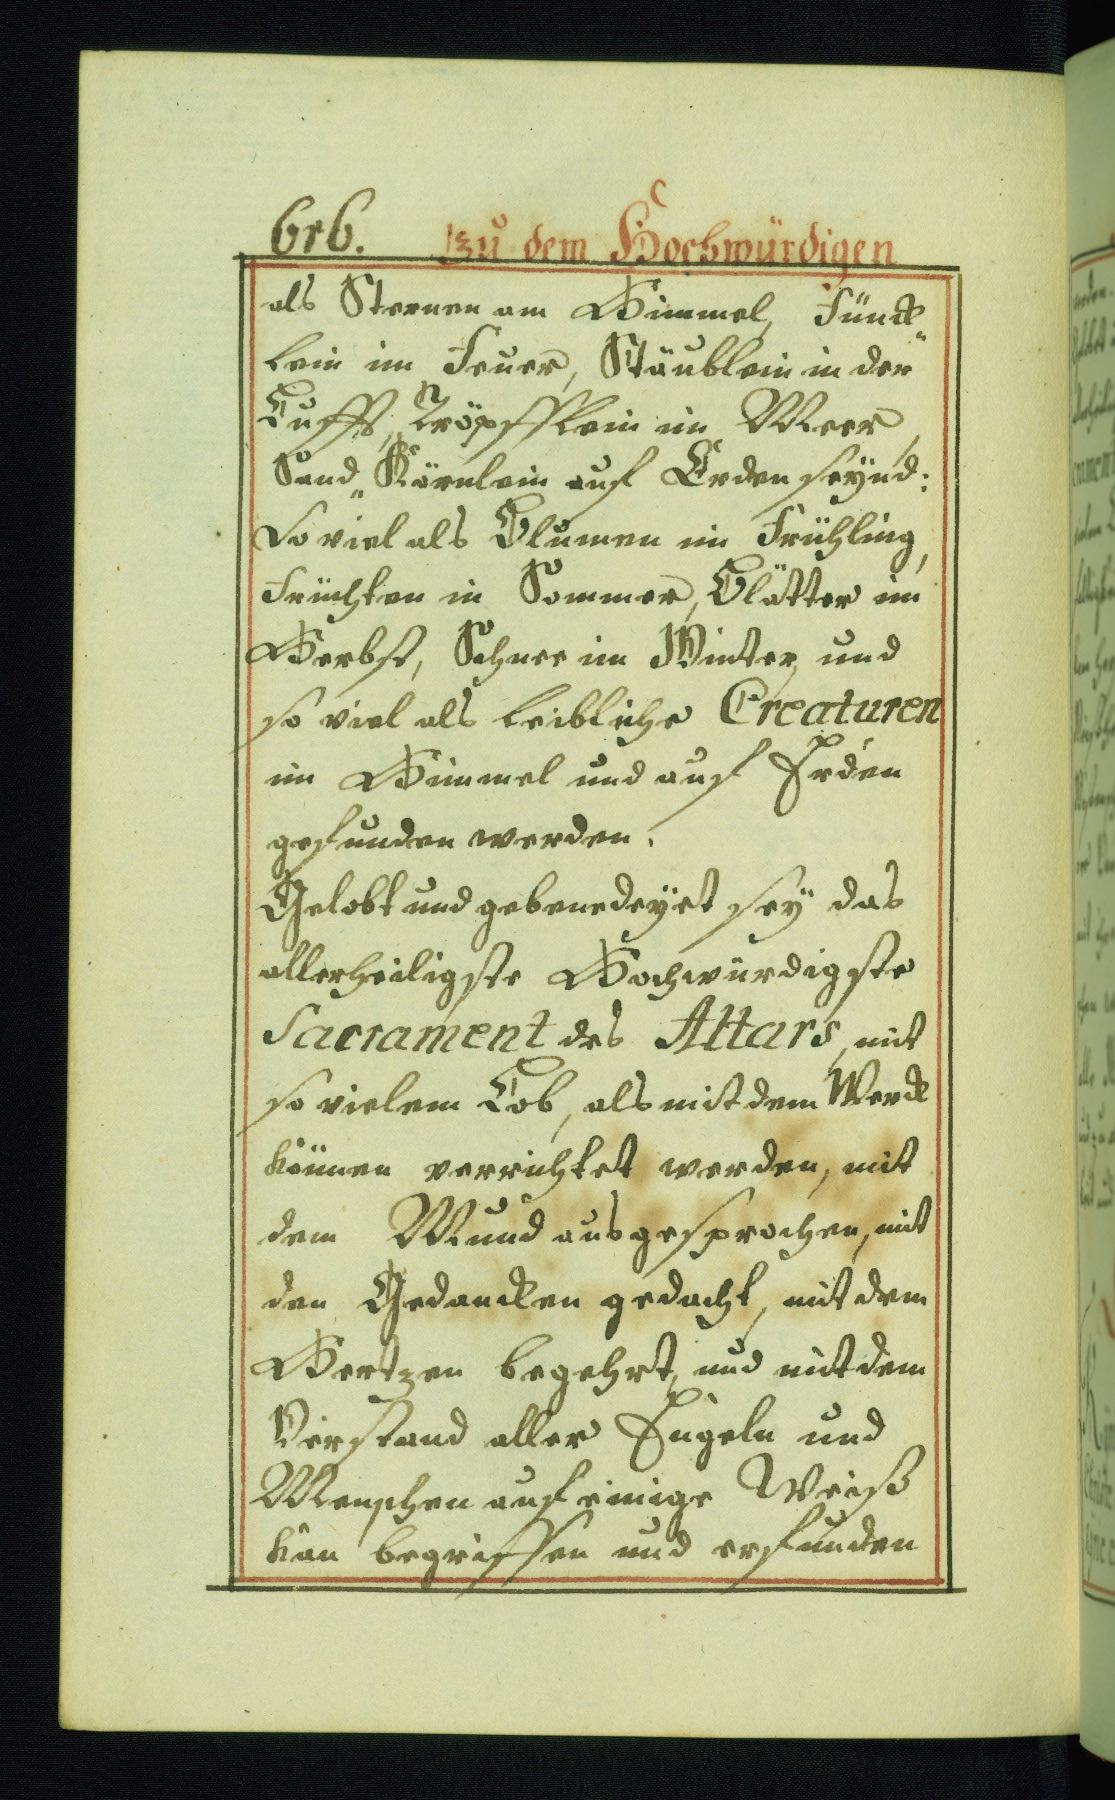 616. Zu dem Hochwürdigen
als Sternen am Himmel, Fünck„
lein im Feuer, Stäublein in der
Lufft, Tröpfflein im Meer,
Sand„Körnlein auf Erden seynd:
So viel als Blumen im Frühling,
Früchten in Sommer, Blätter im
Herbst, Schnee im Winter, und
so viel als leibliche Creaturen
im Himmel und auf Erden
gefunden werden.
Gelobt und gebenedeyet sey das
allerheiligste Hochwürdigste
Sacrament des Altars, mit
so vielem Lob, als mit dem Werck
können verrichtet werden, mit
dem Mund ausgesprochen, mit
den Gedancken gedacht, mit dem
Hertzen begehrt, und mit dem
Verstand aller Engeln und
Menschen auf einige Weiß
kan begriffen und erfunden